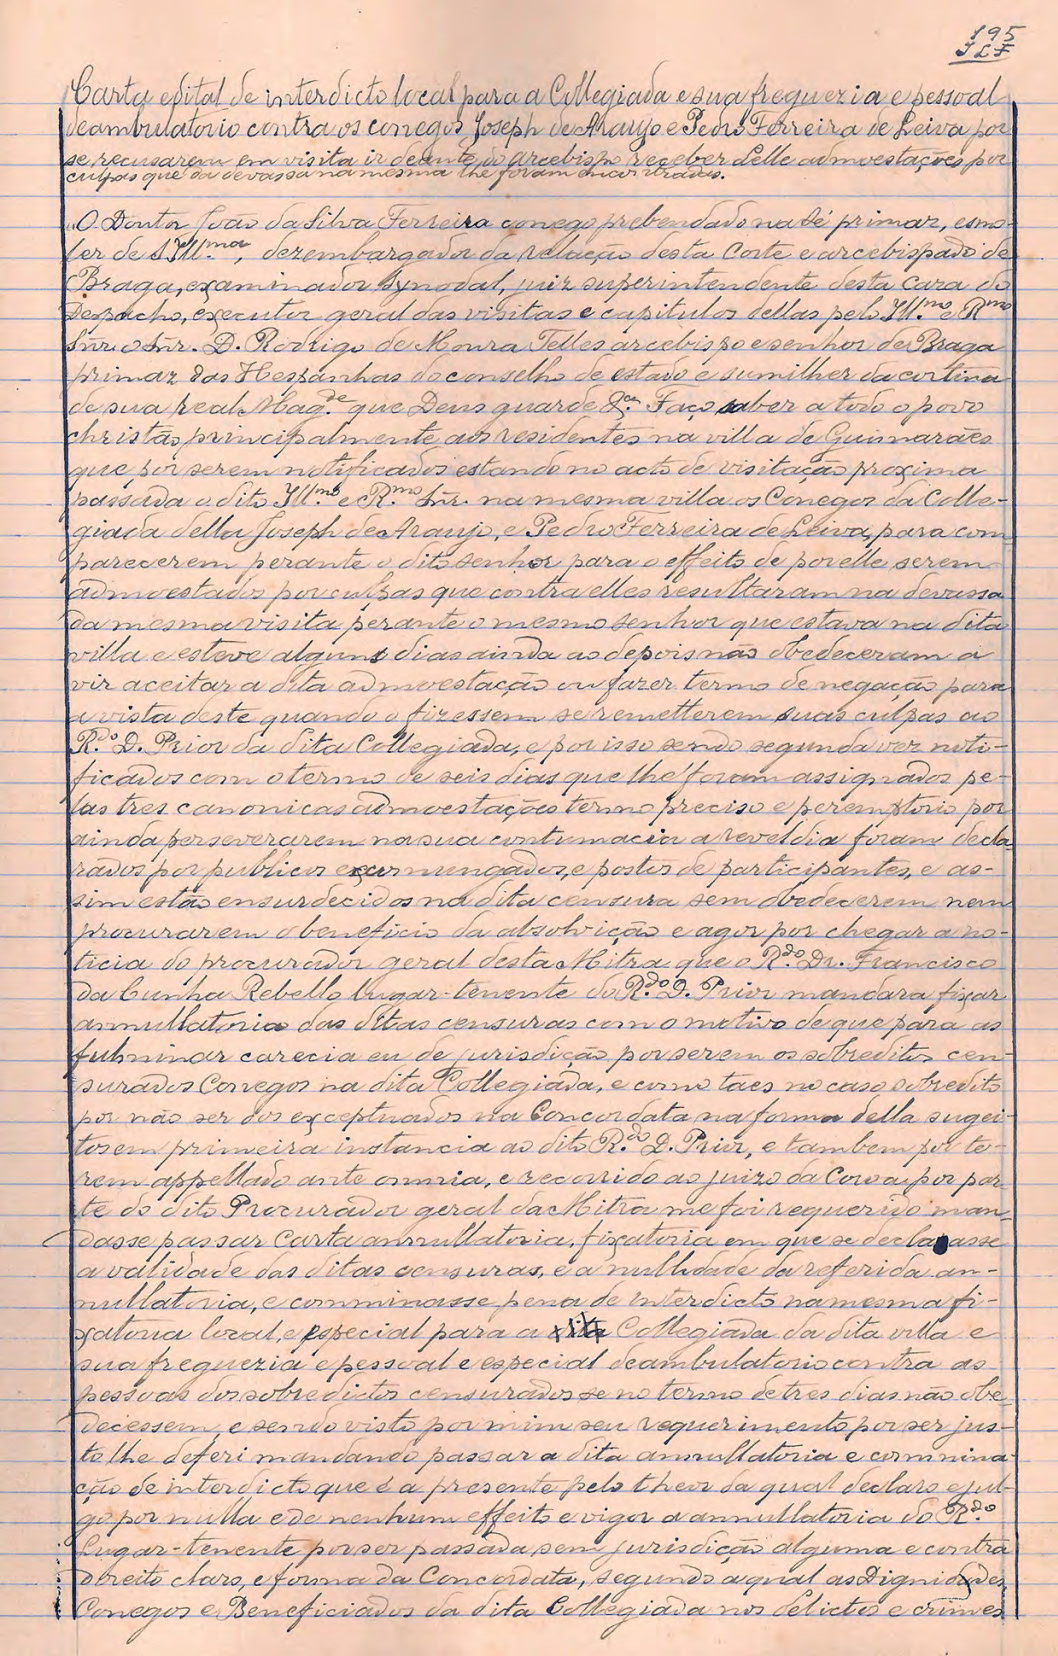 195
JLF
Carta edital de interdicto local para a Collegiada e sua freguezia e pessoal
deambulatorio contra os conegos Joseph de Araujo e Pedro Ferreira de Leiva por
se recusarem em visita ir deante do arcebispo receber delle admoestações por
culpas que da devassa na mesma lhe foram encontradas.
"O Doutor João da Silva Ferreira conego prebendado na Sé primaz, esmo-
ler de S. Ill.ma, dezembargador da relação desta Corte e arcebispado de
Braga, examinador synodal, juiz superintendente desta caza do
Despacho, executor geral das visitas e capitulos dellas pelo Ill.mo e R.mo
Snr. o Snr. D. Rodrigo de Moura Telles arcebispo e senhor de Braga
primaz das Hespanhas do conselho de estado e sumilher da cortina
de sua real Mag.de que Deus guarde &.ca Faço saber a todo o povo
christão principalmente aos residentes na villa de Guimarães
que por serem notificados estando no acto de visitação proxima
passada o dito Ill.mo e R.mo Snr. na mesma villa os Conegos da Colle-
giada della Joseph de Araujo, e Pedro Ferreira de Leiva, para com
parecerem perante o dito senhor para o effeito de por elle serem
admoestados por culpas que contra elles resultaram na devassa
da mesma visita perante o mesmo senhor que estava na dita
villa e esteve alguns dias ainda ao depois não obedeceram a
vir aceitar a dita admoestação ou fazer termo de negação para
a vista deste quando o fizessem se remetterem suas culpas ao
R.do D. Prior da dita Collegiada, e por isso sendo segunda vez noti-
ficados com o termo de seis dias que lhe foram assignados pe-
las tres canonicas admoestações termo preciso e peremptorio por
ainda perseverarem na sua contumacia a reveldia foram decla
rados por publicos excommungados, e postos de participantes, e as-
sim estão ensurdecidos na dita censura sem obedecerem nem
procurarem o beneficio da absolvição e agor por chegar a no-
ticia do procurador geral desta Mitra que o R.do Dr. Francisco
da Cunha Rebello lugar-tenente do R.do D. Prior mandara fixar
annullatoria das ditas censuras com o motivo de que para as
fulminar carecia eu de jurisdição por serem os sobreditos cen-
surados Conegos na dita Collegiada, e como taes no caso sobredito
por não ser dos exceptuados na Concordata na forma della sugei-
tos em primeira instancia ao dito R.do D. Prior, e tambem por te-
rem appellado ante omnia, e recorrido ao juizo da Coroa por par
te do dito Procurador geral da Mitra me foi requerido man-
dasse passar Carta annullatoria, fixatoria em que se declarasse
a validade das ditas censuras, e a nullidade da referida an-
nullatoria, e comminasse pena de interdicto na mesma fi-
xatoria local, e especial para a Collegiada da dita villa e
sua freguezia e pessoal e especial deambulatorio contra as
pessoas dos sobredictos censurados se no termo de tres dias não obe
decessem, e sendo visto por mim seu requerimento por ser jus-
to lhe deferi mandando passar a dita annullatoria e commina-
ção de interdicto que é a presente pelo theor da qual declaro e jul-
go por nulla e de nenhum effeito e vigor a annullatoria do R.do
Lugar-tenente por ser passada sem jurisdição alguma e contra
direito claro, e forma da Concordata, segundo a qual as Dignidades
Conegos e Beneficiados da dita Collegiada nos delictos e crimes